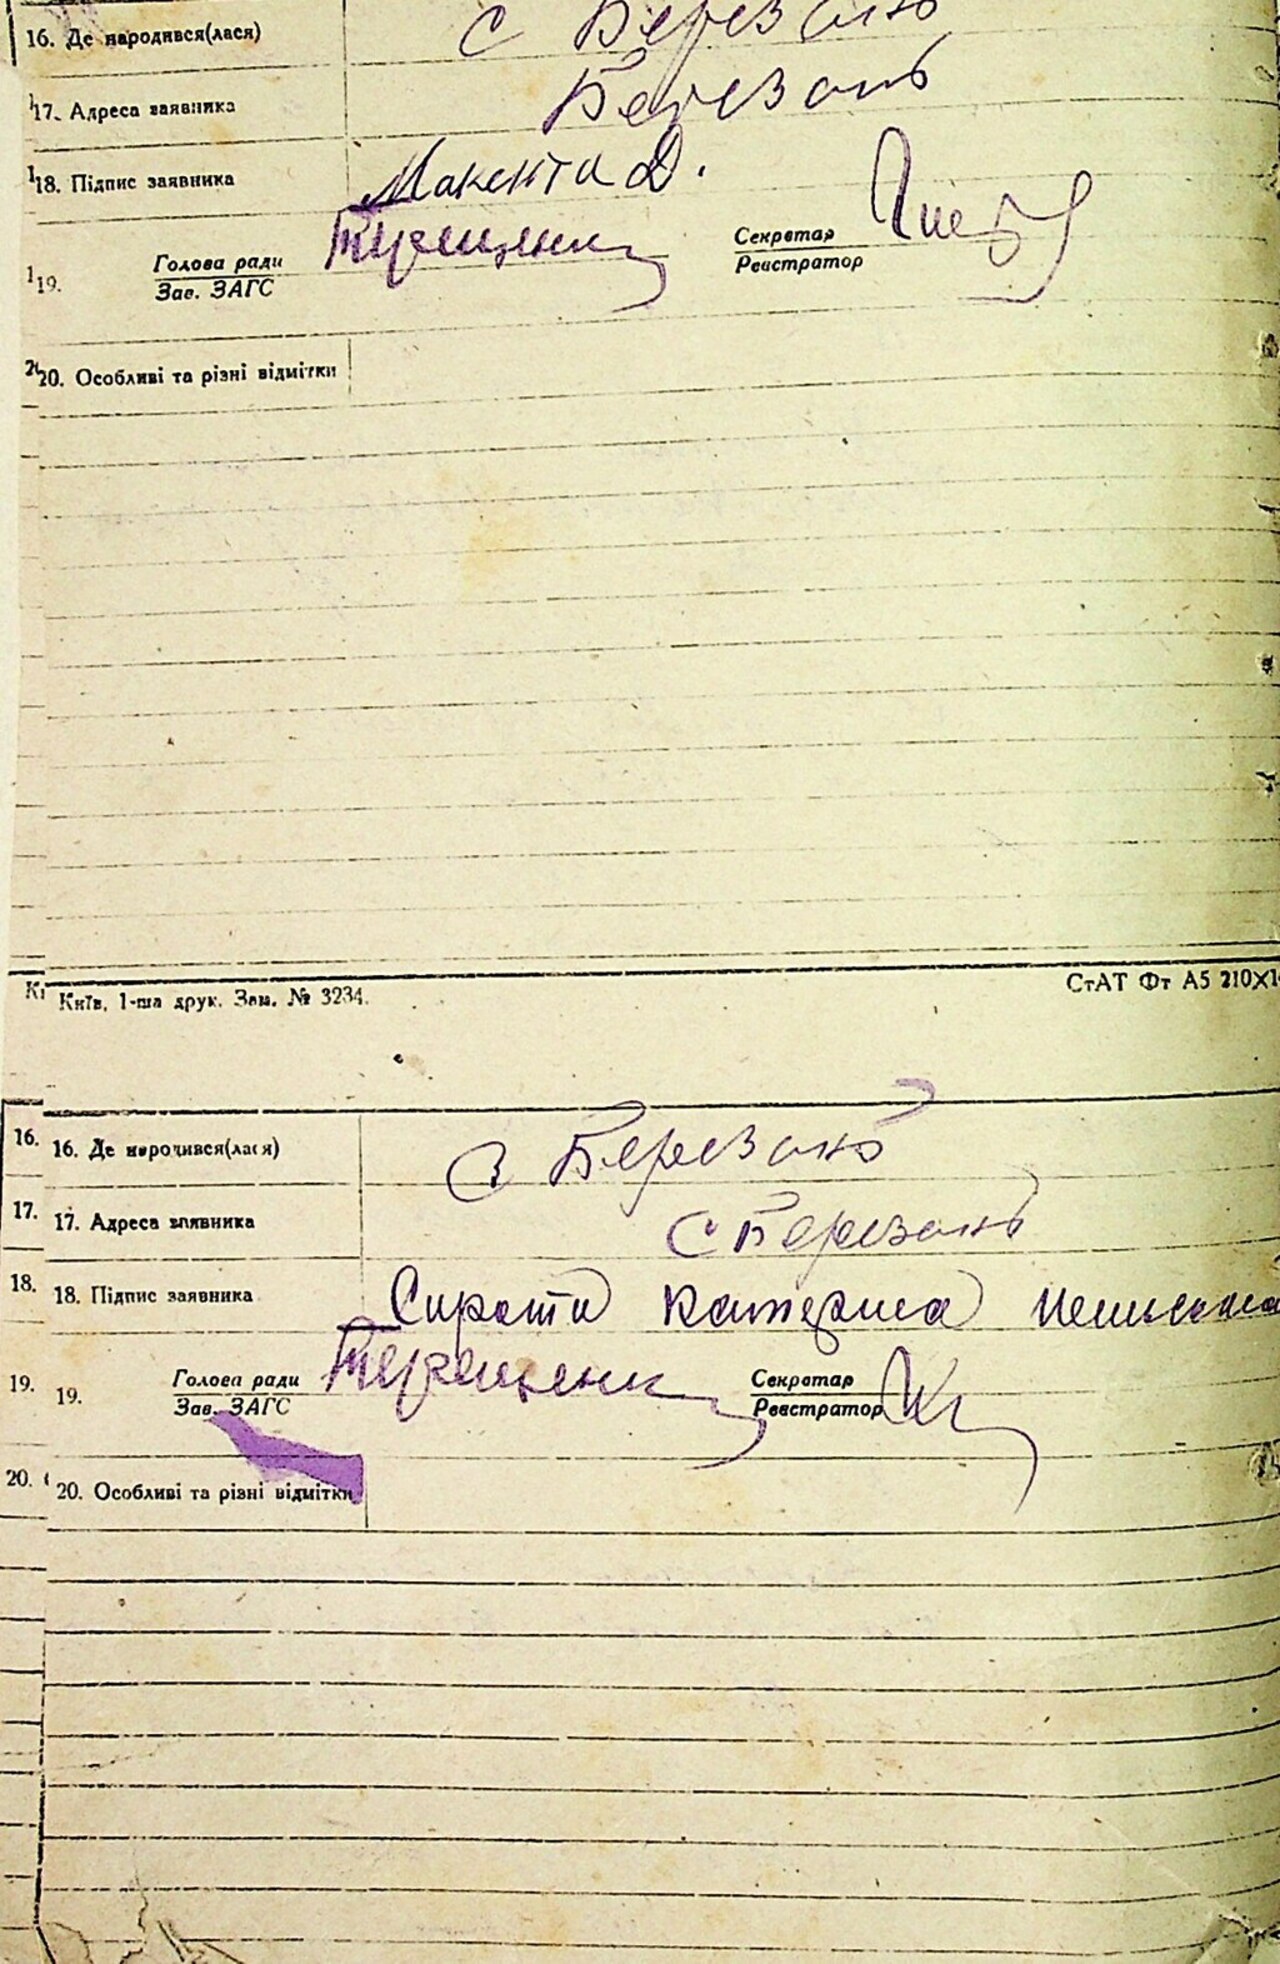 16. Де народився(лася) с Березань
17. Адреса заявника Березань
18. Підпис заявника Макента Д.
19. Голова ради Терещенко Секретар
Зав. ЗАГС Реєстратор
20. Особливі та різні відмітки
Київ, 1-ша друк. Зам. № 3234. СтАТ Фт А5 210×1
16. 16. Де народився(лася) с Березань
17. 17. Адреса заявника с Березань
18. 18. Підпис заявника Сирота Катерина
19. 19. Голова ради Терещенко Секретар
Зав. ЗАГС Реєстратор
20. 20. Особливі та різні відмітки